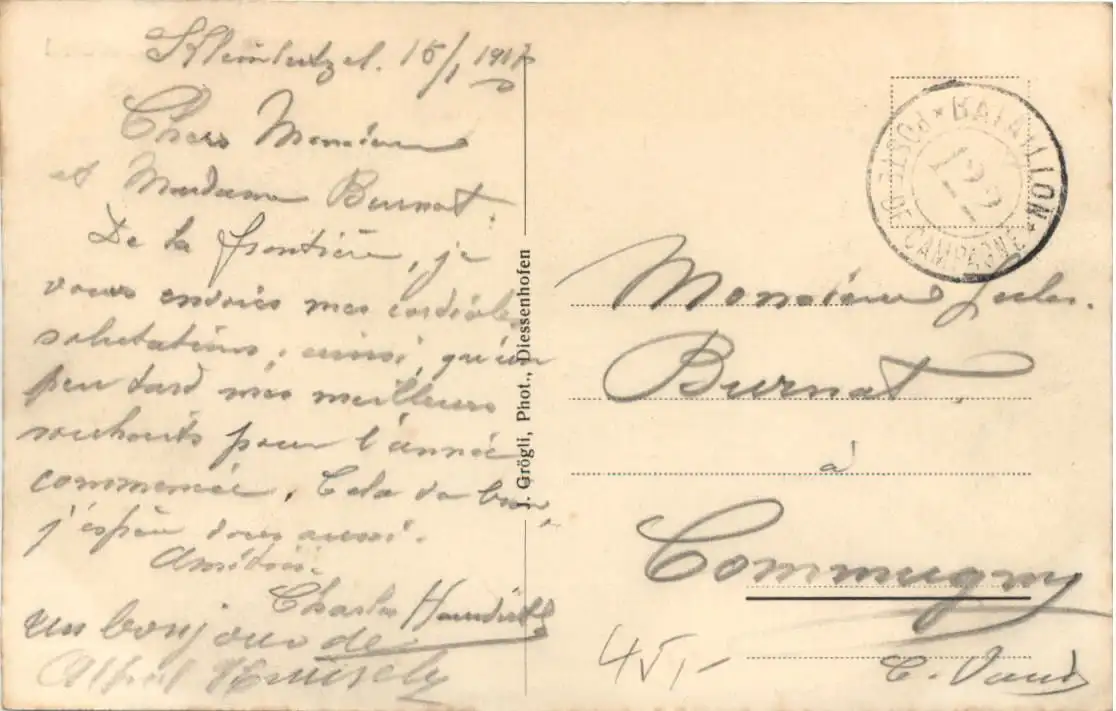 Kleinlützel. 15/1 1917
Chers Monsieur
et Madame Burnat.
De la frontière, je
vous envoies mes cordiales
salutations, ainsi, qu'un
peu tard mes meilleurs
souhaits pour l'année
commencée. Cela va bien,
j'espère vous aussi.
Amitiés
Charles
un bonjour de
Alfred
J. Grögli, Phot., Diessenhofen
POSTE DE CAMPAGNE * BATAILLON *
Monsieur Jules
Burnat.
à
Commugny
C. Vaud
45,-